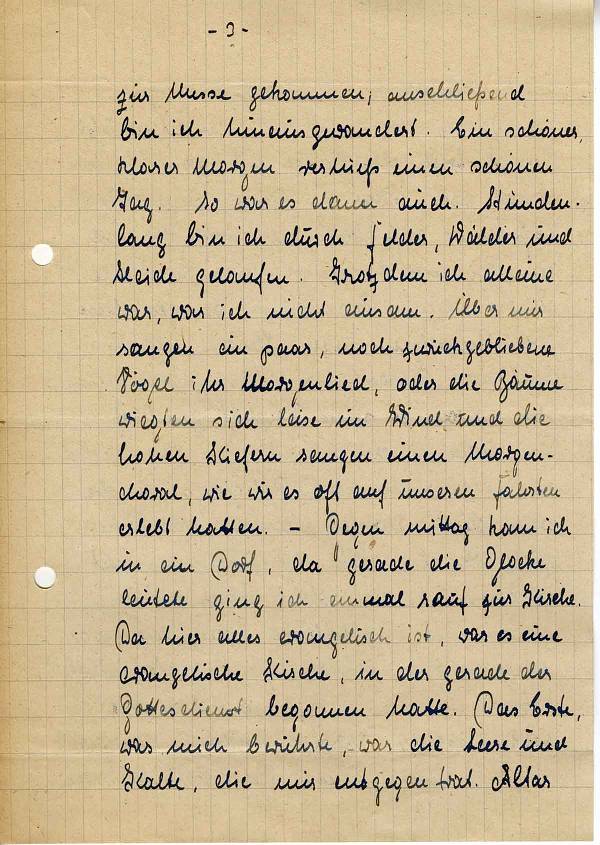 - 3 -
zur Messe gekommen, anschließend
bin ich hinausgewandert. Ein schöner,
klarer Morgen verhieß einen schönen
Tag. So war es dann auch. Stunden-
lang bin ich durch Felder, Wälder und
Heide gelaufen. Trotzdem ich alleine
war, war ich nicht einsam. Über mir
sangen ein paar, noch zurückgebliebene
Vögel ihr Morgenlied, oder die Bäume
wiegten sich leise im Wind und die
hohen Kiefern sangen einen Morgen-
choral, wie wir es oft auf unseren Fahrten
erlebt hatten. – Gegen mittag kam ich
in ein Dorf, da gerade die Glocke
leutete ging ich einmal rauf zur Kirche.
Da hier alles evangelisch ist, war es eine
evangelische Kirche, in der gerade der
Gottesdienst begonnen hatte. Das Erste,
was mich berührte, war die Leere und
Kälte, die mir entgegen trat. Altar